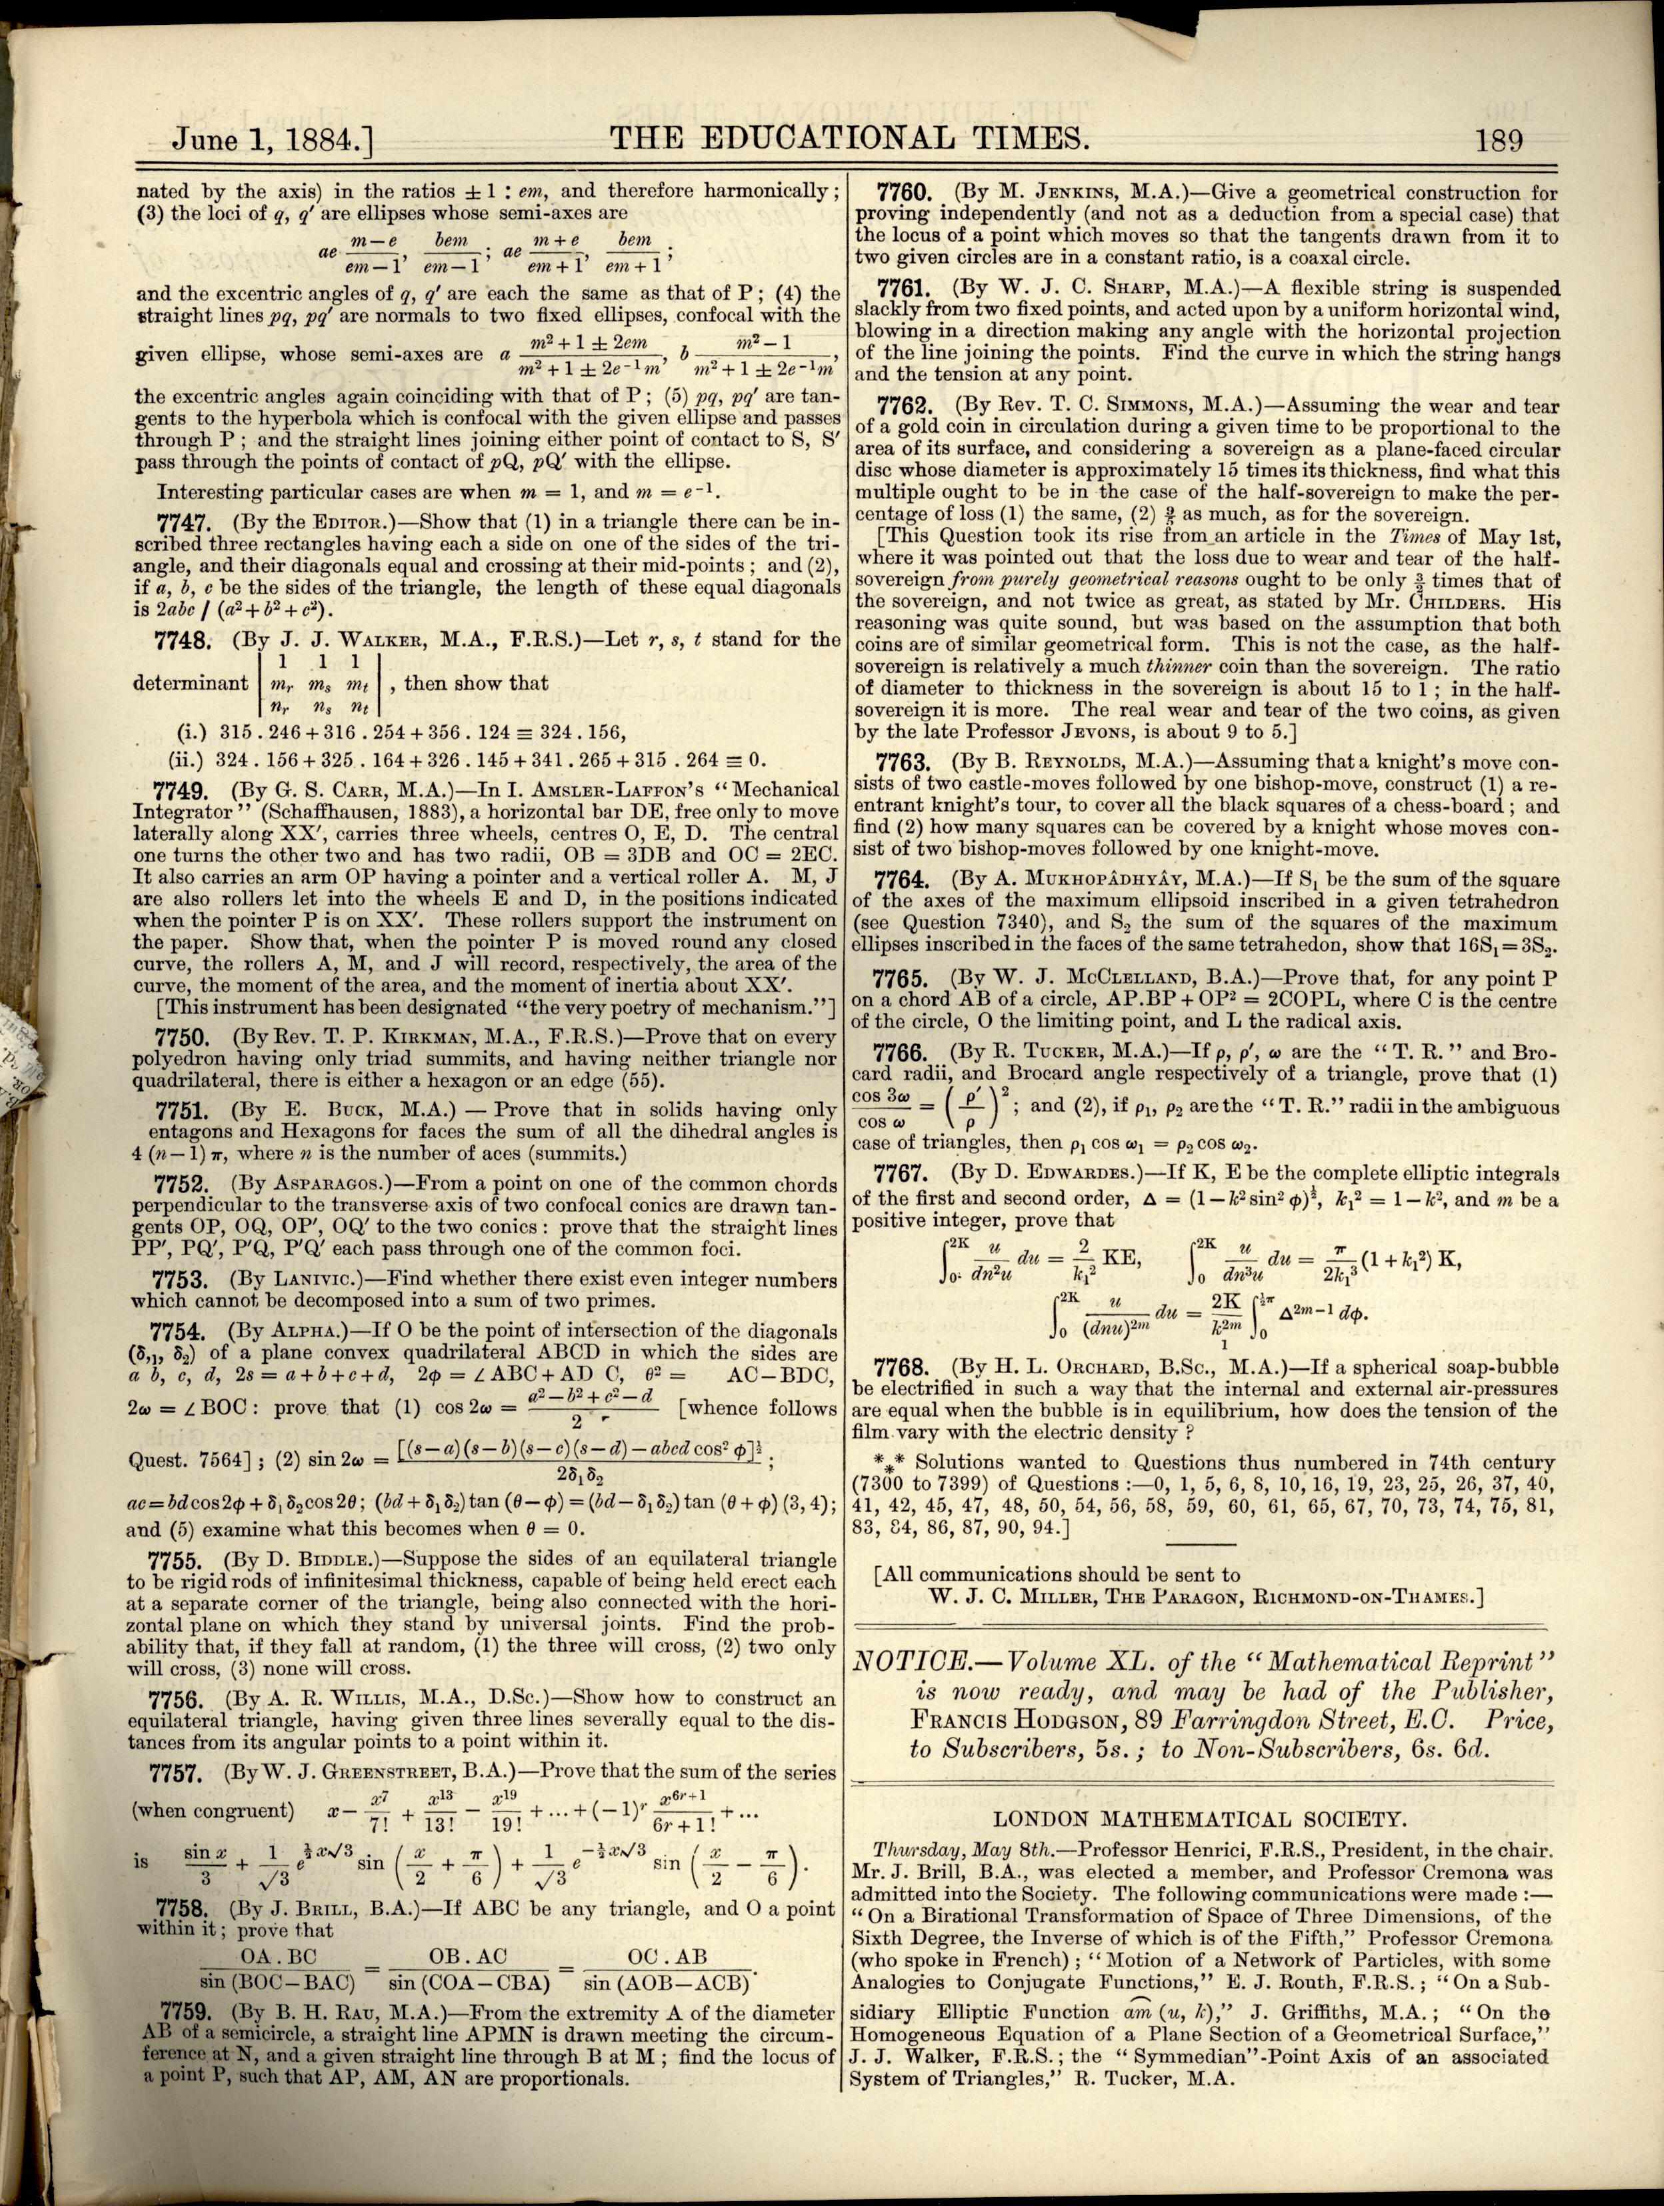 June 1, 1884.]
THE EDUCATIONAL TIMES.
189
nated by the axis) in the ratios ±1 : em, and therefore harmonically;
(3) the loci of q, q′ are ellipses whose semi-axes are
ae (m−e)/(em−1), bem/(em−1); ae (m+e)/(em+1), bem/(em+1);
and the excentric angles of q, q′ are each the same as that of P; (4) the
straight lines pq, pq′ are normals to two fixed ellipses, confocal with the
given ellipse, whose semi-axes are a (m²+1±2em)/(m²+1±2e⁻¹m), b (m²−1)/(m²+1±2e⁻¹m),
the excentric angles again coinciding with that of P; (5) pq, pq′ are tan-
gents to the hyperbola which is confocal with the given ellipse and passes
through P; and the straight lines joining either point of contact to S, S′
pass through the points of contact of pQ, pQ′ with the ellipse.
Interesting particular cases are when m = 1, and m = e⁻¹.
7747. (By the EDITOR.)—Show that (1) in a triangle there can be in-
scribed three rectangles having each a side on one of the sides of the tri-
angle, and their diagonals equal and crossing at their mid-points; and (2),
if a, b, c be the sides of the triangle, the length of these equal diagonals
is 2abc / (a²+b²+c²).
7748. (By J. J. WALKER, M.A., F.R.S.)—Let r, s, t stand for the
1 1 1
determinant | mr ms mt | , then show that
nr ns nt
(i.) 315 . 246 + 316 . 254 + 356 . 124 ≡ 324 . 156,
(ii.) 324 . 156 + 325 . 164 + 326 . 145 + 341 . 265 + 315 . 264 ≡ 0.
7749. (By G. S. CARR, M.A.)—In I. AMSLER-LAFFON'S "Mechanical
Integrator" (Schaffhausen, 1883), a horizontal bar DE, free only to move
laterally along XX′, carries three wheels, centres O, E, D. The central
one turns the other two and has two radii, OB = 3DB and OC = 2EC.
It also carries an arm OP having a pointer and a vertical roller A. M, J
are also rollers let into the wheels E and D, in the positions indicated
when the pointer P is on XX′. These rollers support the instrument on
the paper. Show that, when the pointer P is moved round any closed
curve, the rollers A, M, and J will record, respectively, the area of the
curve, the moment of the area, and the moment of inertia about XX′.
[This instrument has been designated "the very poetry of mechanism."]
7750. (By Rev. T. P. KIRKMAN, M.A., F.R.S.)—Prove that on every
polyedron having only triad summits, and having neither triangle nor
quadrilateral, there is either a hexagon or an edge (55).
7751. (By E. BUCK, M.A.) — Prove that in solids having only
entagons and Hexagons for faces the sum of all the dihedral angles is
4 (n−1) π, where n is the number of aces (summits.)
7752. (By ASPARAGOS.)—From a point on one of the common chords
perpendicular to the transverse axis of two confocal conics are drawn tan-
gents OP, OQ, OP′, OQ′ to the two conics: prove that the straight lines
PP′, PQ′, P′Q, P′Q′ each pass through one of the common foci.
7753. (By LANIVIC.)—Find whether there exist even integer numbers
which cannot be decomposed into a sum of two primes.
7754. (By ALPHA.)—If O be the point of intersection of the diagonals
(δ,₁, δ₂) of a plane convex quadrilateral ABCD in which the sides are
a b, c, d, 2s = a+b+c+d, 2φ = ∠ABC+AD C, θ² = AC−BDC,
2ω = ∠BOC: prove that (1) cos 2ω = (a²−b²+c²−d)/2 [whence follows
Quest. 7564]; (2) sin 2ω = [(s−a)(s−b)(s−c)(s−d)−abcd cos² φ]^½ / 2δ₁δ₂;
ac = bd cos 2φ + δ₁δ₂ cos 2θ; (bd+δ₁δ₂) tan (θ−φ) = (bd−δ₁δ₂) tan (θ+φ) (3, 4);
and (5) examine what this becomes when θ = 0.
7755. (By D. BIDDLE.)—Suppose the sides of an equilateral triangle
to be rigid rods of infinitesimal thickness, capable of being held erect each
at a separate corner of the triangle, being also connected with the hori-
zontal plane on which they stand by universal joints. Find the prob-
ability that, if they fall at random, (1) the three will cross, (2) two only
will cross, (3) none will cross.
7756. (By A. R. WILLIS, M.A., D.Sc.)—Show how to construct an
equilateral triangle, having given three lines severally equal to the dis-
tances from its angular points to a point within it.
7757. (By W. J. GREENSTREET, B.A.)—Prove that the sum of the series
(when congruent) x − x⁷/7! + x¹³/13! − x¹⁹/19! + ... + (−1)ʳ x⁶ʳ⁺¹/6r+1! + ...
is sin x/3 + 1/√3 e^(½x√3) sin (x/2 + π/6) + 1/√3 e^(−½x√3) sin (x/2 − π/6).
7758. (By J. BRILL, B.A.)—If ABC be any triangle, and O a point
within it; prove that
OA . BC / sin (BOC−BAC) = OB . AC / sin (COA−CBA) = OC . AB / sin (AOB−ACB).
7759. (By B. H. RAU, M.A.)—From the extremity A of the diameter
AB of a semicircle, a straight line APMN is drawn meeting the circum-
ference at N, and a given straight line through B at M; find the locus of
a point P, such that AP, AM, AN are proportionals.
7760. (By M. JENKINS, M.A.)—Give a geometrical construction for
proving independently (and not as a deduction from a special case) that
the locus of a point which moves so that the tangents drawn from it to
two given circles are in a constant ratio, is a coaxal circle.
7761. (By W. J. C. SHARP, M.A.)—A flexible string is suspended
slackly from two fixed points, and acted upon by a uniform horizontal wind,
blowing in a direction making any angle with the horizontal projection
of the line joining the points. Find the curve in which the string hangs
and the tension at any point.
7762. (By Rev. T. C. SIMMONS, M.A.)—Assuming the wear and tear
of a gold coin in circulation during a given time to be proportional to the
area of its surface, and considering a sovereign as a plane-faced circular
disc whose diameter is approximately 15 times its thickness, find what this
multiple ought to be in the case of the half-sovereign to make the per-
centage of loss (1) the same, (2) as much, as for the sovereign.
[This Question took its rise from an article in the Times of May 1st,
where it was pointed out that the loss due to wear and tear of the half-
sovereign from purely geometrical reasons ought to be only times that of
the sovereign, and not twice as great, as stated by Mr. CHILDERS. His
reasoning was quite sound, but was based on the assumption that both
coins are of similar geometrical form. This is not the case, as the half-
sovereign is relatively a much thinner coin than the sovereign. The ratio
of diameter to thickness in the sovereign is about 15 to 1; in the half-
sovereign it is more. The real wear and tear of the two coins, as given
by the late Professor JEVONS, is about 9 to 5.]
7763. (By B. REYNOLDS, M.A.)—Assuming that a knight's move con-
sists of two castle-moves followed by one bishop-move, construct (1) a re-
entrant knight's tour, to cover all the black squares of a chess-board; and
find (2) how many squares can be covered by a knight whose moves con-
sist of two bishop-moves followed by one knight-move.
7764. (By A. MUKHOPÂDHYÂY, M.A.)—If S₁ be the sum of the square
of the axes of the maximum ellipsoid inscribed in a given tetrahedron
(see Question 7340), and S₂ the sum of the squares of the maximum
ellipses inscribed in the faces of the same tetrahedon, show that 16S₁ = 3S₂.
7765. (By W. J. MCCLELLAND, B.A.)—Prove that, for any point P
on a chord AB of a circle, AP.BP + OP² = 2COPL, where C is the centre
of the circle, O the limiting point, and L the radical axis.
7766. (By R. TUCKER, M.A.)—If ρ, ρ′, ω are the "T. R." and Bro-
card radii, and Brocard angle respectively of a triangle, prove that (1)
cos 3ω / cos ω = (ρ′/ρ)²; and (2), if ρ₁, ρ₂ are the "T. R." radii in the ambiguous
case of triangles, then ρ₁ cos ω₁ = ρ₂ cos ω₂.
7767. (By D. EDWARDES.)—If K, E be the complete elliptic integrals
of the first and second order, Δ = (1−k² sin² φ)^½, k₁² = 1−k², and m be a
positive integer, prove that
∫₀²ᴷ u/dn²u du = 2/k₁² KE, ∫₀²ᴷ u/dn³u du = π/2k₁³ (1+k₁²) K,
∫₀²ᴷ u/(dnu)²ᵐ du = 2K/k₁²ᵐ ∫₀^½π Δ²ᵐ⁻¹ dφ.
7768. (By H. L. ORCHARD, B.Sc., M.A.)—If a spherical soap-bubble
be electrified in such a way that the internal and external air-pressures
are equal when the bubble is in equilibrium, how does the tension of the
film vary with the electric density?
*** Solutions wanted to Questions thus numbered in 74th century
(7300 to 7399) of Questions:—0, 1, 5, 6, 8, 10, 16, 19, 23, 25, 26, 37, 40,
41, 42, 45, 47, 48, 50, 54, 56, 58, 59, 60, 61, 65, 67, 70, 73, 74, 75, 81,
83, 84, 86, 87, 90, 94.]
[All communications should be sent to
W. J. C. MILLER, THE PARAGON, RICHMOND-ON-THAMES.]
NOTICE.—Volume XL. of the "Mathematical Reprint"
is now ready, and may be had of the Publisher,
FRANCIS HODGSON, 89 Farringdon Street, E.C. Price,
to Subscribers, 5s.; to Non-Subscribers, 6s. 6d.
LONDON MATHEMATICAL SOCIETY.
Thursday, May 8th.—Professor Henrici, F.R.S., President, in the chair.
Mr. J. Brill, B.A., was elected a member, and Professor Cremona was
admitted into the Society. The following communications were made:—
"On a Birational Transformation of Space of Three Dimensions, of the
Sixth Degree, the Inverse of which is of the Fifth," Professor Cremona
(who spoke in French); "Motion of a Network of Particles, with some
Analogies to Conjugate Functions," E. J. Routh, F.R.S.; "On a Sub-
sidiary Elliptic Function am (u, k)," J. Griffiths, M.A.; "On the
Homogeneous Equation of a Plane Section of a Geometrical Surface,"
J. J. Walker, F.R.S.; the "Symmedian"-Point Axis of an associated
System of Triangles," R. Tucker, M.A.